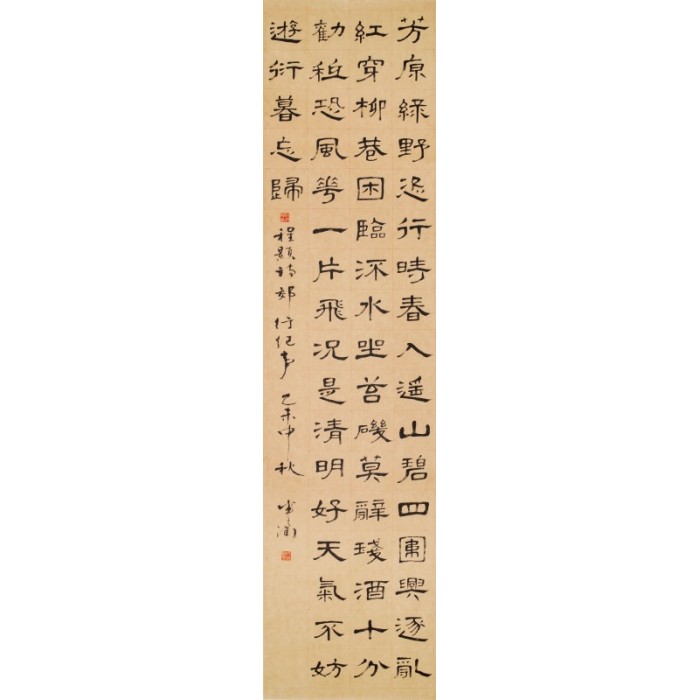 芳原綠野恣行時春入遥山碧四圍興逐亂
紅穿柳巷困臨深水坐苔磯莫辭琖酒十分
勸秪恐風華一片飛況是清明好天氣不妨
遊衍暮忘歸 程顥詩郊行紀事 乙未中秋